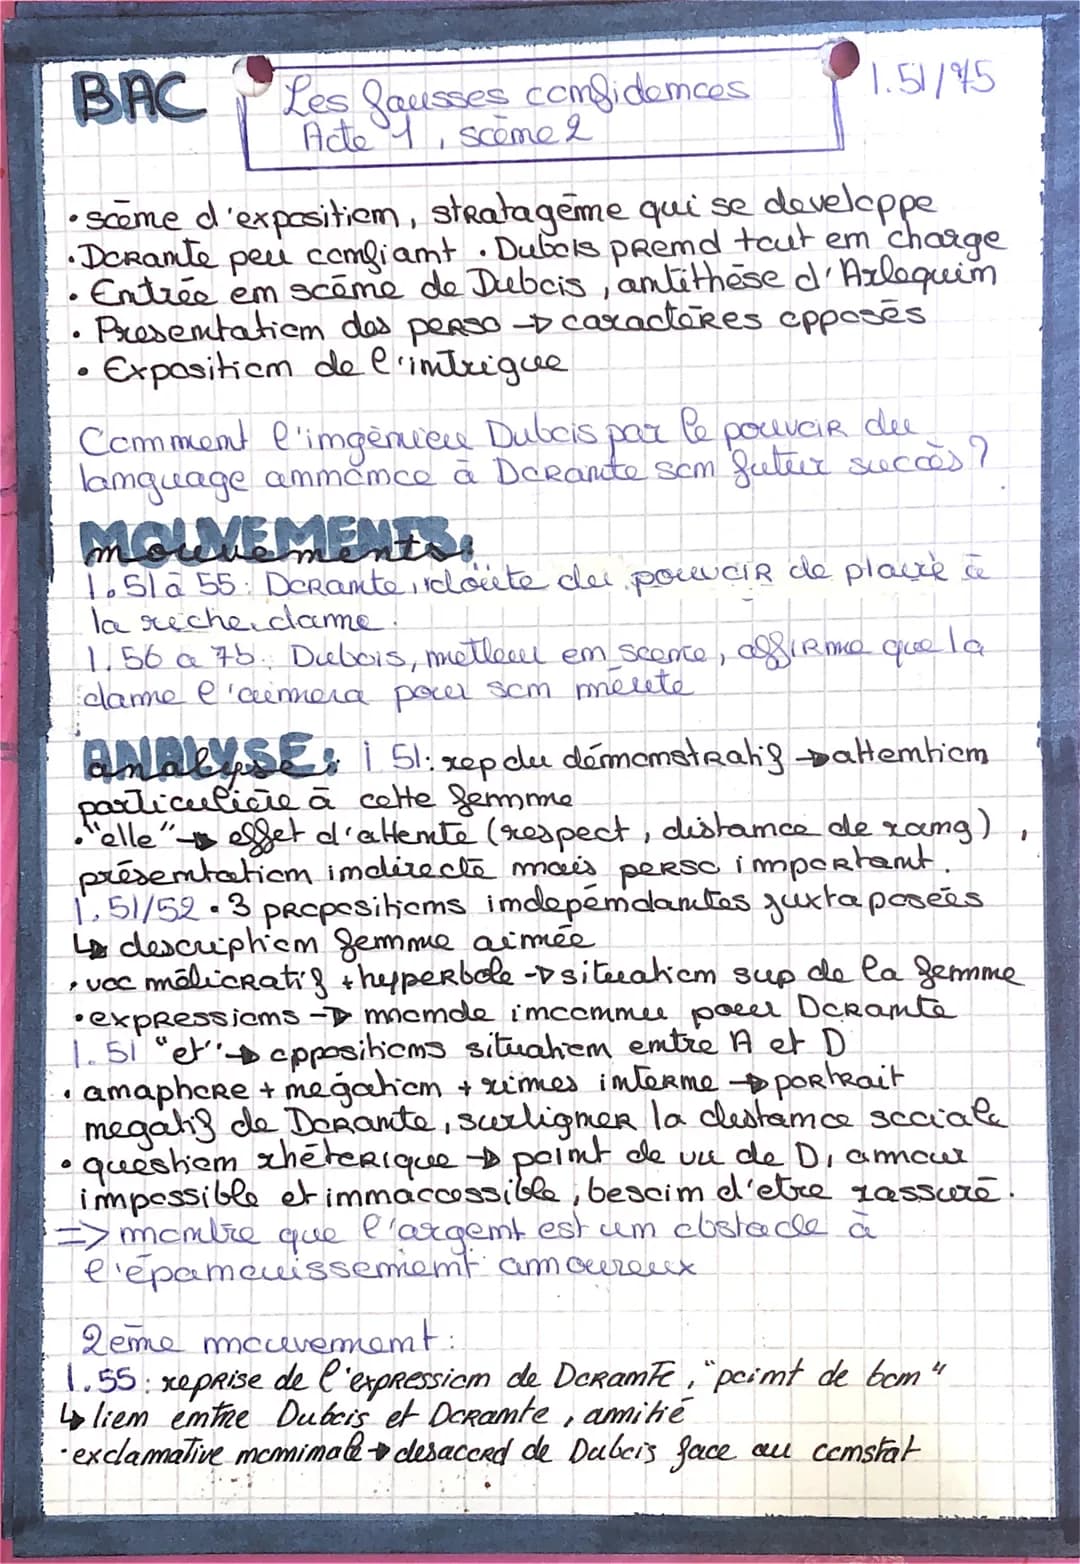 BAC
Les fausses confidences
Acte 1, scène 2
l.51/75
• scène d'exposition, stratagème qui se developpe
• Dorante peu confiant • Dubois prend tout en charge
• Entrée en scène de Dubois, antithèse d'Arlequin
• Presentation des perso → caractères opposés
• Exposition de l'intrigue
Comment l'ingénieux Dubois par le pouvoir du
language annonce à Dorante son futur succès?
MOUVEMENTS:
mouvements:
l.51 à 55: Dorante, doute du pouvoir de plaire à
la riche dame.
l.56 a 75: Dubois, metteur en scene, affirme que la
dame l'aimera pour son mérite
ANALYSE:
analyse: l 51: rep du démonstratif → attention
particulière à cette femme
• "elle" → effet d'attente (respect, distance de rang),
présentation indirecte mais perso important.
l.51/52 • 3 propositions indépendantes juxtaposées
↳ description femme aimée
• voc mélioratif + hyperbole → situation sup de la femme
• expressions → monde inconnu pour Dorante
l.51 "et" → oppositions situation entre A et D
• anaphore + négation + rimes interne → portrait
negatif de Dorante, surligner la distance sociale
• question rhéterique → point de vu de D, amour
impossible et innaccessible, besoin d'etre rassuré.
=> montre que l'argent est un obstacle à
l'épanouissement amoureux
2eme mouvement:
l.55: reprise de l'expression de Dorante, "point de bon"
↳ lien entre Dubois et Dorante, amitié
• exclamative nominale → desaccord de Dubois face au constat